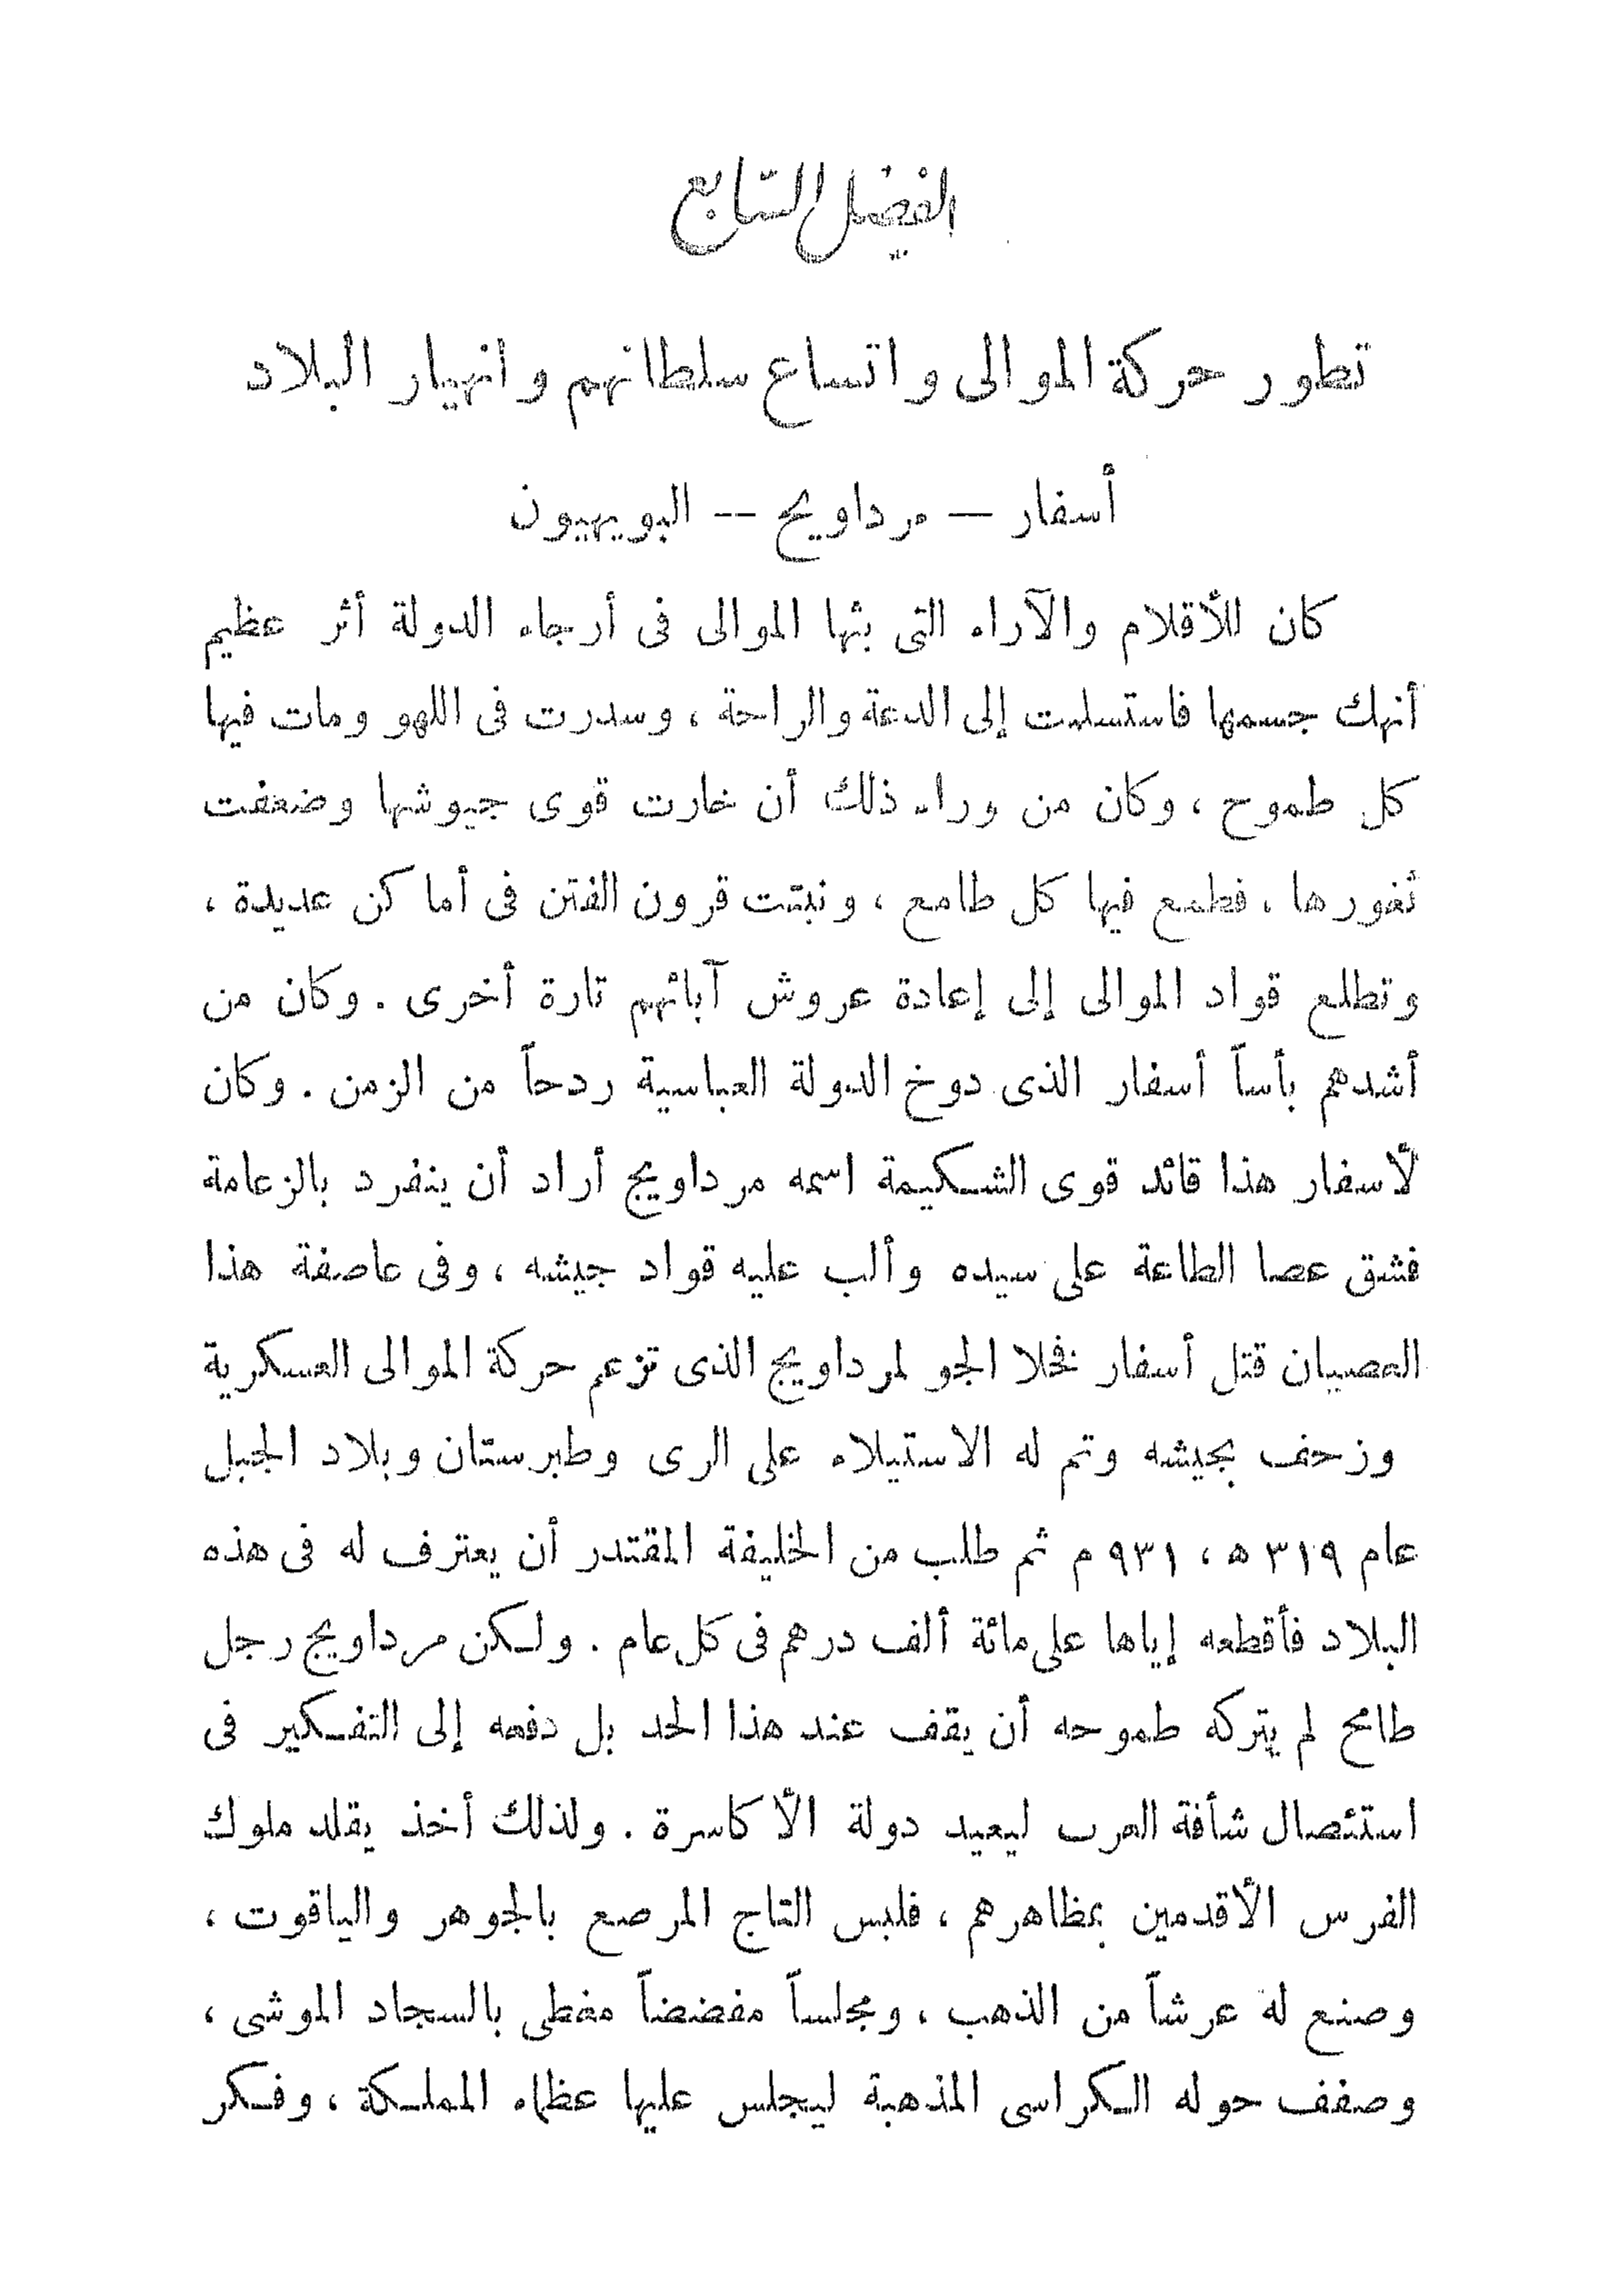 الفصل السابع
تطور حركة الموالى واتساع سلطانهم وانهيار البلاد
أسفار — مرداويج -- البويهيون
كان للأقلام والآراء التى بثها الموالى فى أرجاء الدولة أثر عظيم
أنهك جسمها فاستسلمت إلى الدعة والراحة ، وسدرت فى اللهو ومات فيها
كل طموح ، وكان من وراء ذلك أن خارت قوى جيوشها وضعفت
ثغورها ، فطمع فيها كل طامع ، ونبتت قرون الفتن فى أماكن عديدة ،
وتطلع قواد الموالى إلى إعادة عروش آبائهم تارة أخرى . وكان من
أشدهم بأساً أسفار الذى دوخ الدولة العباسية ردحاً من الزمن . وكان
لأسفار هذا قائد قوى الشكيمة اسمه مرداويج أراد أن ينفرد بالزعامة
فشق عصا الطاعة على سيده وألب عليه قواد جيشه ، وفى عاصفة هذا
العصيان قتل أسفار فخلا الجو لمرداويج الذى تزعم حركة الموالى العسكرية
وزحف بجيشه وتم له الاستيلاء على الرى وطبرستان وبلاد الجبل
عام ٣١٩ ه ، ٩٣١ م ثم طلب من الخليفة المقتدر أن يعترف له فى هذه
البلاد فأقطعه إياها على مائة ألف درهم فى كل عام . ولكن مرداويج رجل
طامح لم يتركه طموحه أن يقف عند هذا الحد بل دفعه إلى التفكير فى
استئصال شأفة العرب ليعيد دولة الأكاسرة . ولذلك أخذ يقلد ملوك
الفرس الأقدمين بمظاهرهم ، فلبس التاج المرصع بالجوهر والياقوت ،
وصنع له عرشاً من الذهب ، ومجلساً مفضضاً مغطى بالسجاد الموشى ،
وصفف حوله الكراسى المذهبة ليجلس عليها عظماء المملكة ، وفكر